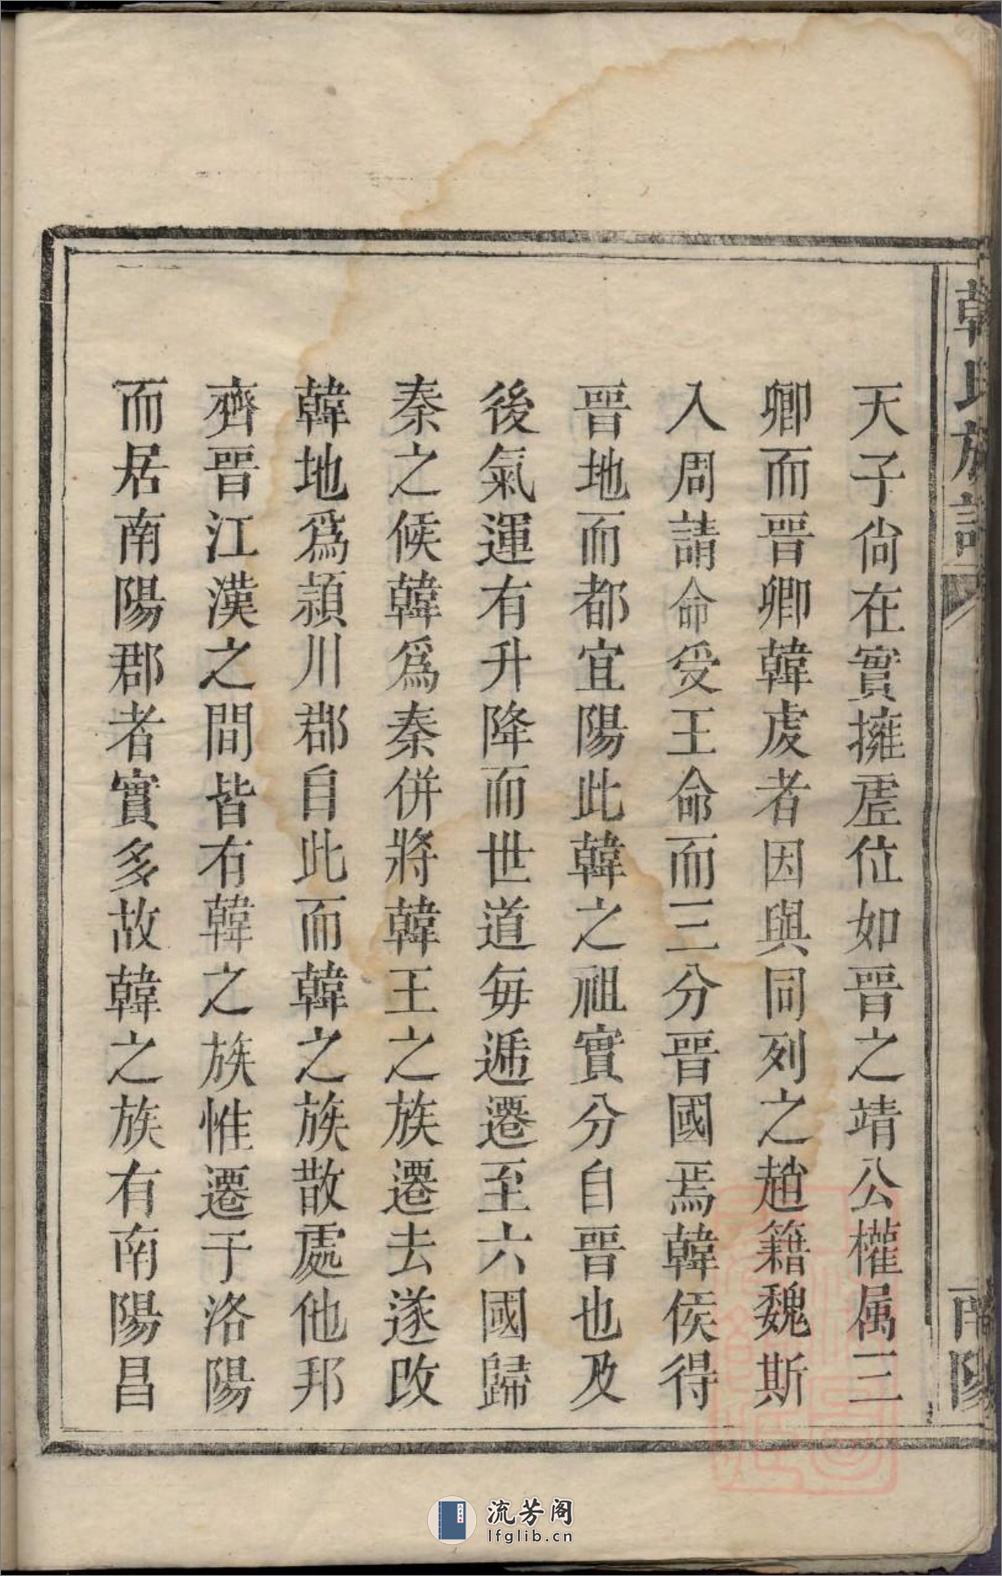 韓氏族譜
南陽
天子尙在實擁虛位如晉之靖公權属三
卿而晉卿韓虔者因與同列之趙籍魏斯
入周請命受王命而三分晉國焉韓侯得
晉地而都宜陽此韓之祖實分自晉也及
後氣運有升降而世道每遞遷至六國歸
秦之候韓爲秦併將韓王之族遷去遂改
韓地爲潁川郡自此而韓之族散處他邦
齊晉江漢之間皆有韓之族惟遷于洛陽
而居南陽郡者實多故韓之族有南陽昌
流芳阁
lfglib.cn